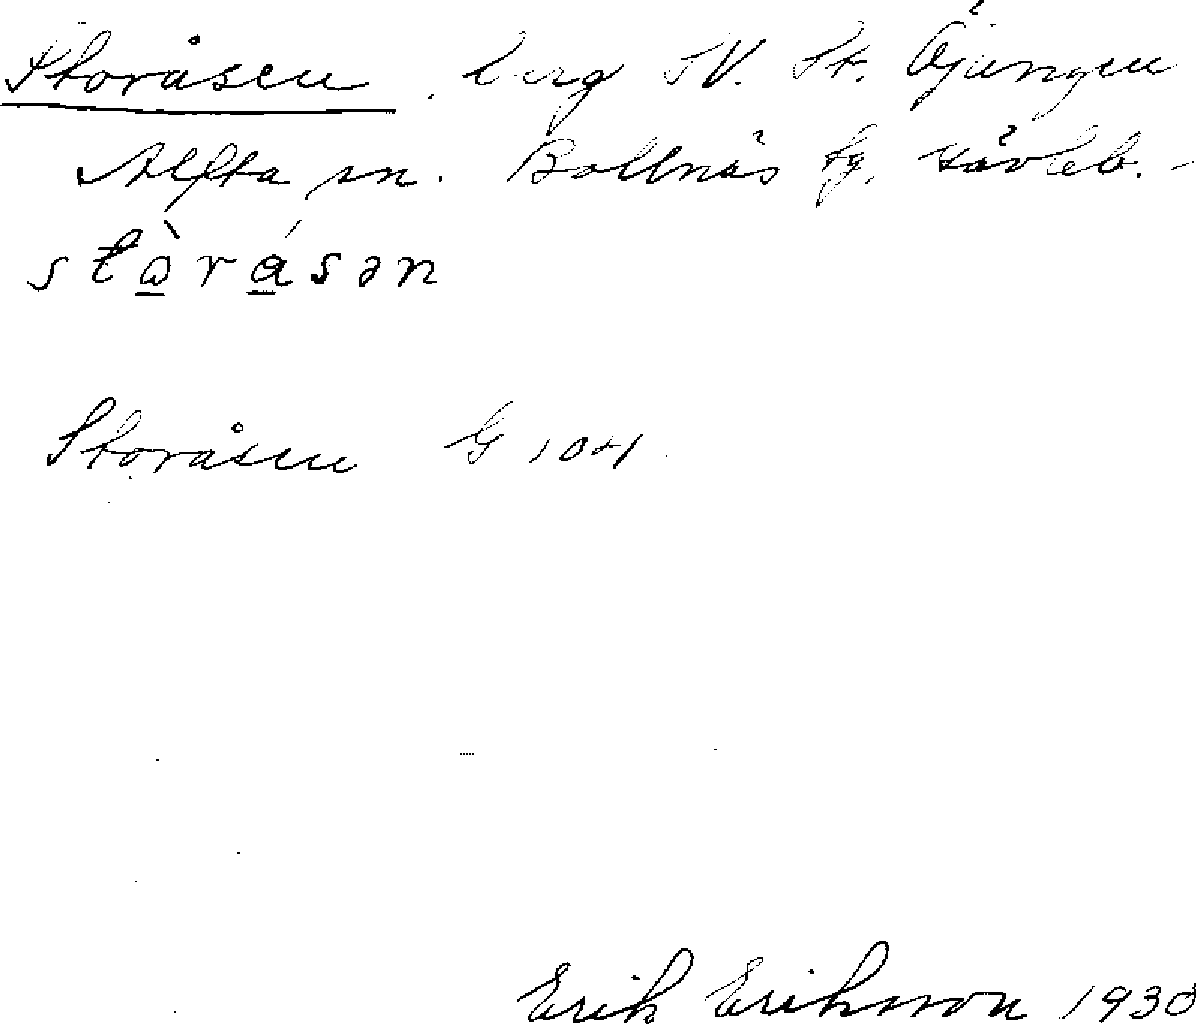 Storåsen, berg SV. St. Öjungen
Alfta sn. Bollnäs tg. Gävleb.
stò̱rá̱sən
Storåsen G 104
Erik Eriksson 1930